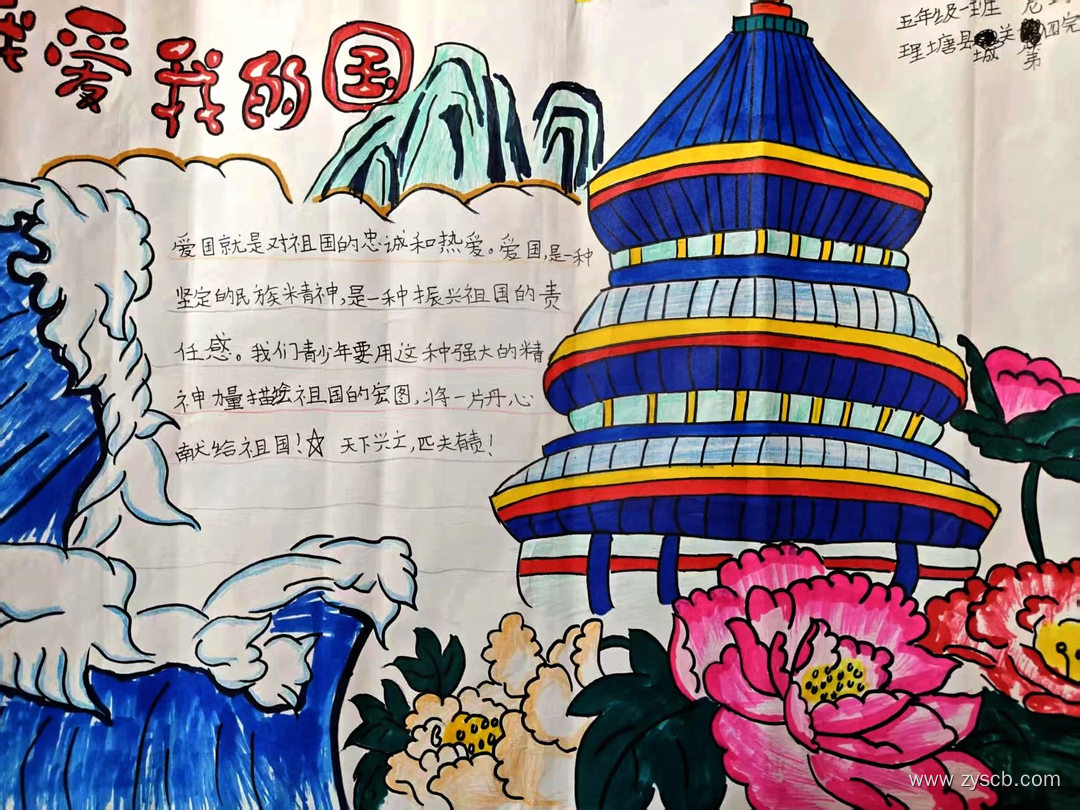 我爱我的国
五年级一班
理塘县城关第四完
爱国就是对祖国的忠诚和热爱。爱国,是一种
坚定的民族精神,是一种振兴祖国的责
任感。我们青少年要用这种强大的精
神力量描绘祖国的宏图,将一片丹心
献给祖国!☆ 天下兴亡,匹夫有责!
www.zyscb.com